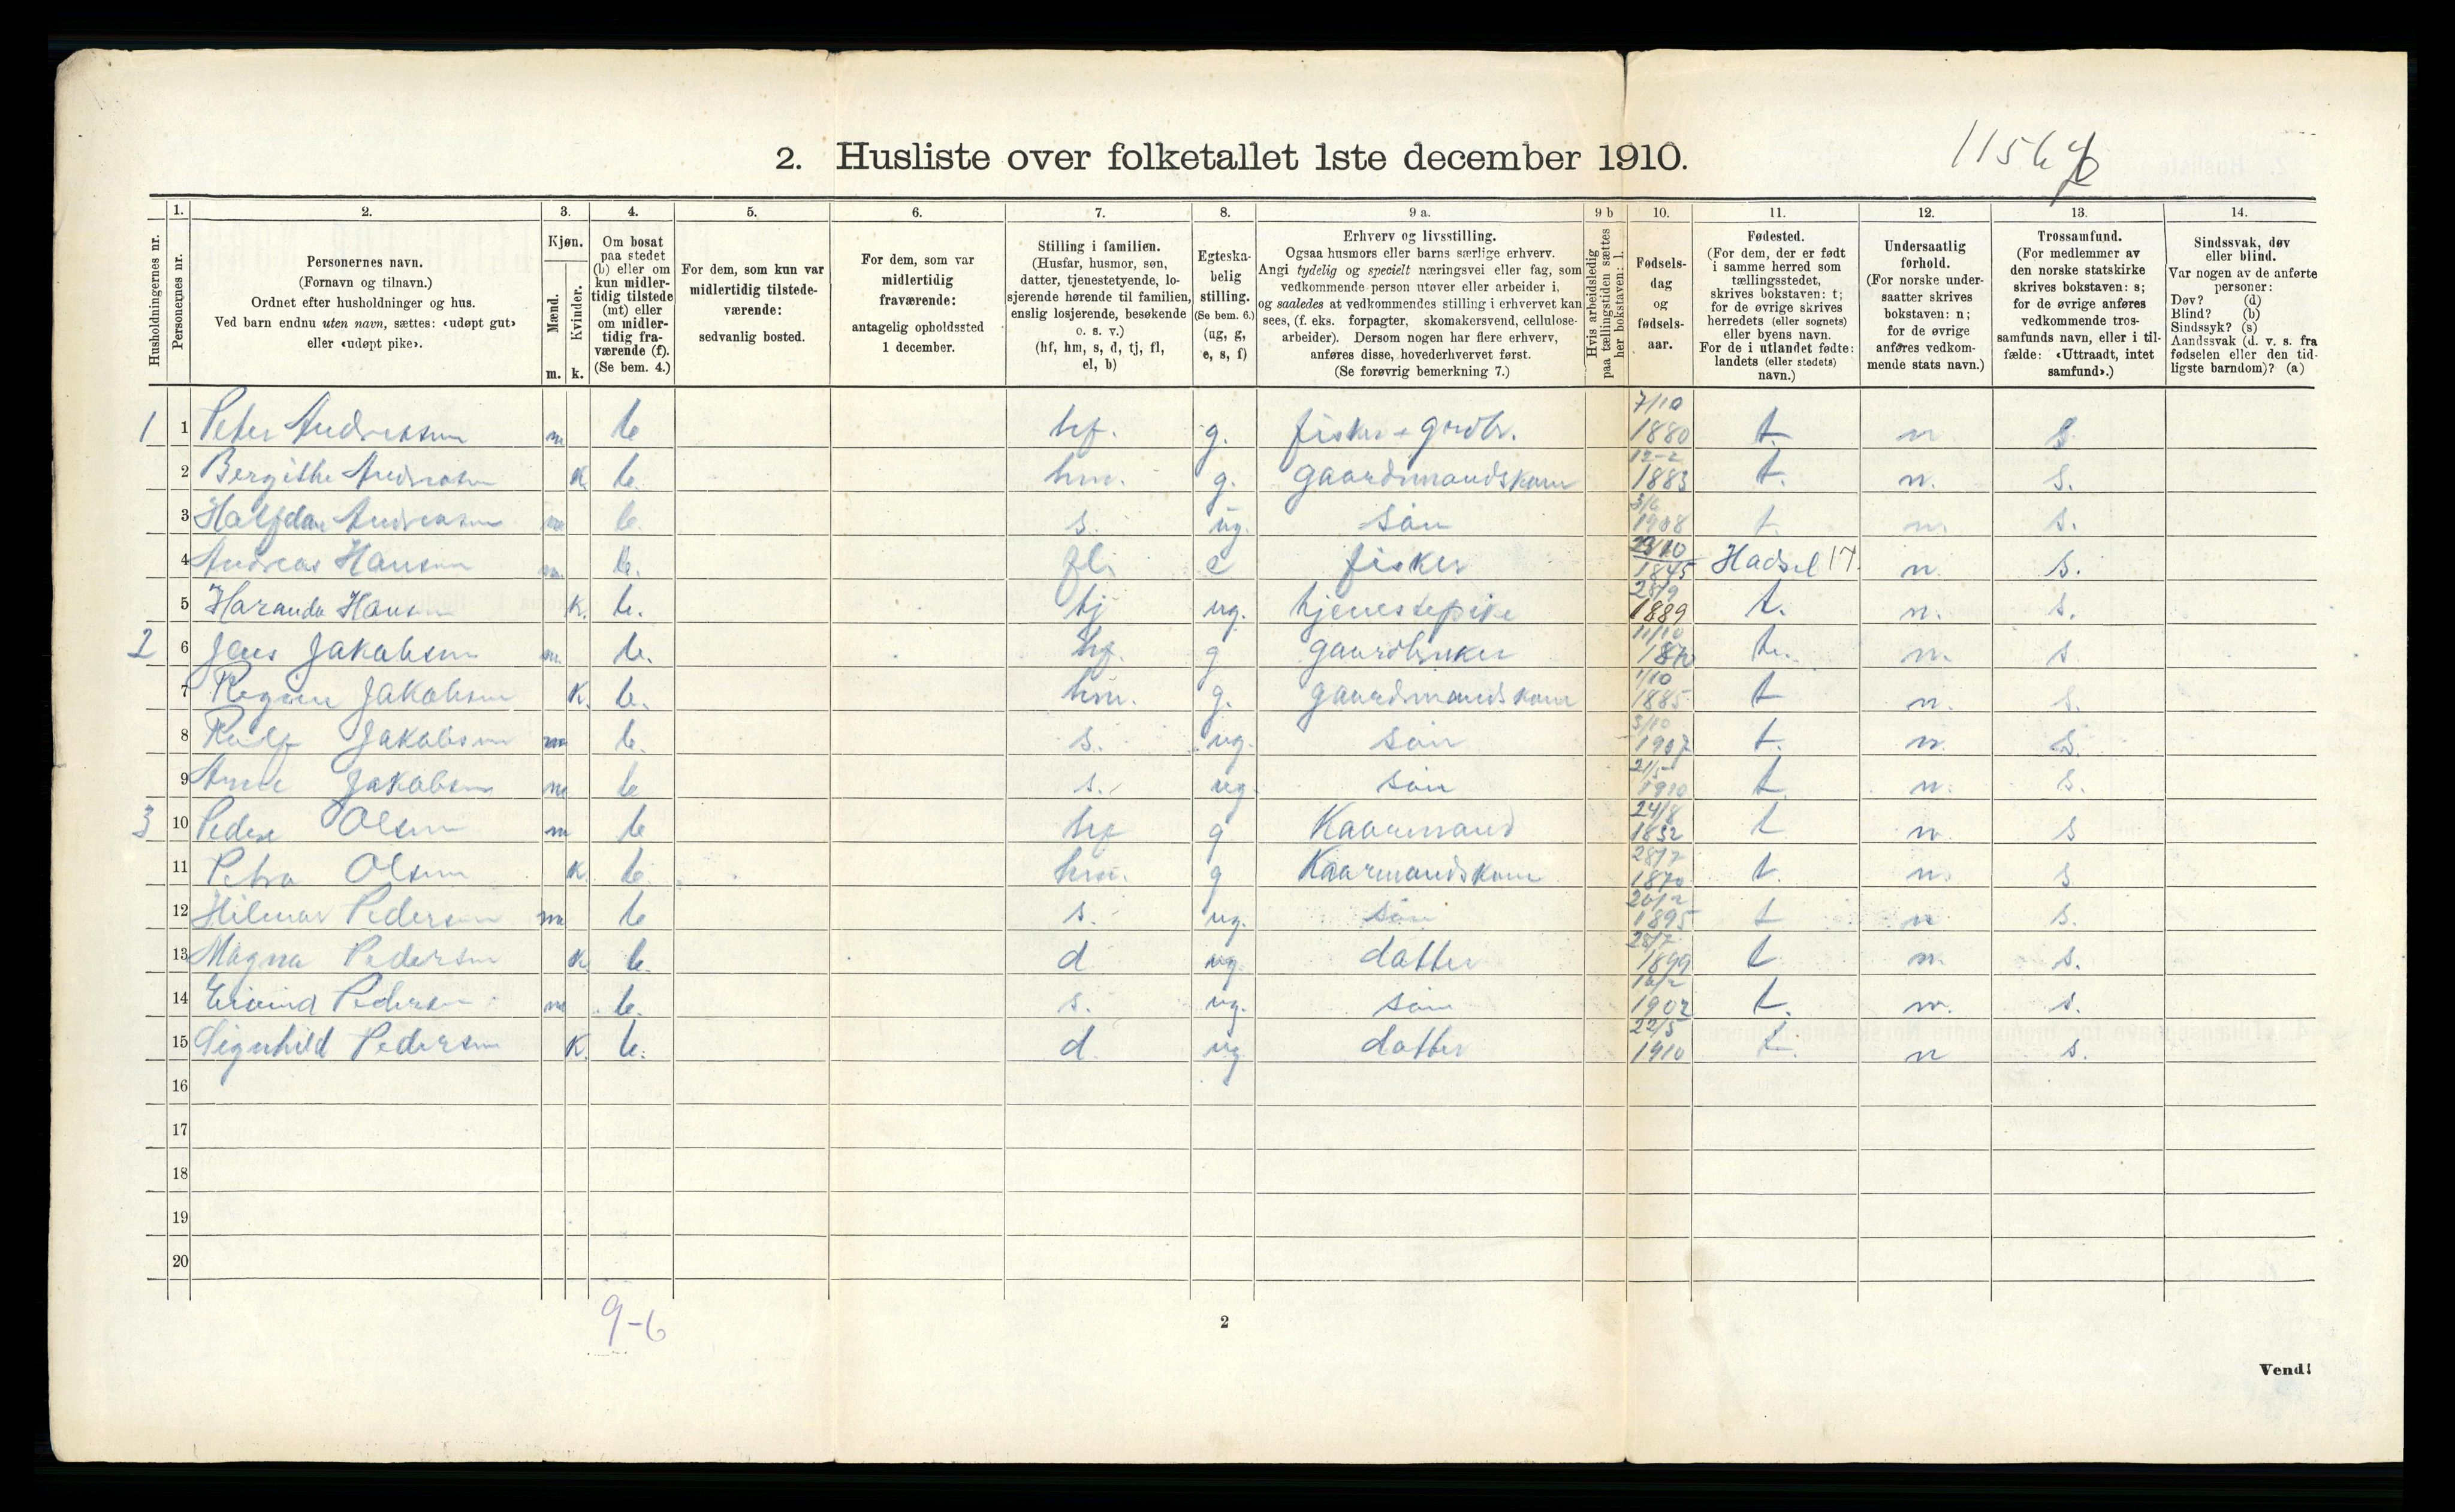 2. Husliste over folketallet 1ste december 1910.
Husholdningernes nr.
1. Personernes nr.
2. Personernes navn.
(Fornavn og tilnavn.)
Ordnet efter husholdninger og hus.
Ved barn endnu uten navn, sættes: «udøpt gut»
eller «udøpt pike».
3. Kjøn.
Mænd. Kvinder.
m. k.
4. Om bosat
paa stedet
(b) eller om
kun midler-
tidig tilstede
(mt) eller
om midler-
tidig fra-
værende (f).
(Se bem. 4.)
5. For dem, som kun var
midlertidig tilstede-
værende:
sedvanlig bosted.
6. For dem, som var
midlertidig
fraværende:
antagelig opholdssted
1 december.
7. Stilling i familien.
(Husfar, husmor, søn,
datter, tjenestetyende, lo-
sjerende hørende til familien,
enslig losjerende, besøkende
o. s. v.)
(hf, hm, s, d, tj, fl,
el, b)
8. Egteska-
belig
stilling.
(Se bem. 6.)
(ug, g,
e, s, f)
9 a. Erhverv og livsstilling.
Ogsaa husmors eller barns særlige erhverv.
Angi tydelig og specielt næringsvei eller fag, som
vedkommende person utøver eller arbeider i,
og saaledes at vedkommendes stilling i erhvervet kan
sees, (f. eks. forpagter, skomakersvend, cellulose-
arbeider). Dersom nogen har flere erhverv,
anføres disse, hovederhvervet først.
(Se forøvrig bemerkning 7.)
9 b Hvis arbeidsledig
paa tællingstiden sættes
her bokstaven: l.
10. Fødsels-
dag
og
fødsels-
aar.
11. Fødested.
(For dem, der er født
i samme herred som
tællingsstedet,
skrives bokstaven: t;
for de øvrige skrives
herredets (eller sognets)
eller byens navn.
For de i utlandet fødte:
landets (eller stedets)
navn.)
12. Undersaatlig
forhold.
(For norske under-
saatter skrives
bokstaven: n;
for de øvrige
anføres vedkom-
mende stats navn.)
13. Trossamfund.
(For medlemmer av
den norske statskirke
skrives bokstaven: s;
for de øvrige anføres
vedkommende tros-
samfunds navn, eller i til-
fælde: «Uttraadt, intet
samfund».)
14. Sindssvak, døv
eller blind.
Var nogen av de anførte
personer:
Døv? (d)
Blind? (b)
Sindssyk? (s)
Aandssvak (d. v. s. fra
fødselen eller den tid-
ligste barndom)? (a)
1 1 Peter Andreassen m b hf. g. fisker + grdbr. 7/10 1880 t. n s.
2 Bergithe Andreasen K. b. hm. g. gaardmandskone 12-2 1883 t. n. s.
3 Halfdan Andreasen m b. s. ug. sön 3/6 1908 t. n. s.
4 Andreas Hansen m. b. fl. e fisker 23/10 1845 Hadsel 17. n. s.
5 Haranda Hansen K. b. tj ug. tjenestepike 28/9 1889 t. n. s.
2 6 Jens Jakobsen m. b. hf. g gaardbruker 11/10 1870 t. n. s
7 Regine Jakobsen K. b. hm. g. gaardmandskone 1/10 1885 t n. s.
8 Rolf Jakobsen m b. s. ug. sön 3/10 1907 t. n. s.
9 Arne Jakobsen m b s. ug. sön 21/5 1910 t. n. s.
3 10 Peder Olsen m b hf g Kaarmand 24/8 1852 t n. s
11 Petra Olsen K. b. hm. g Kaarmandskone 28/7 1870 t. n. s
12 Hilmar Pedersen m b s. ug. sön 20/2 1895 t n s.
13 Magna Pedersen K b. d ug datter 28/7 1899 t n. s.
14 Eivind Pedersen m b. s. ug. sön 16/2 1902 t. n. s.
15 Signhild Pedersen K. b. d. ug datter 22/5 1910 t. n s.
16
17
18
19
20
9-6
2
Vend!